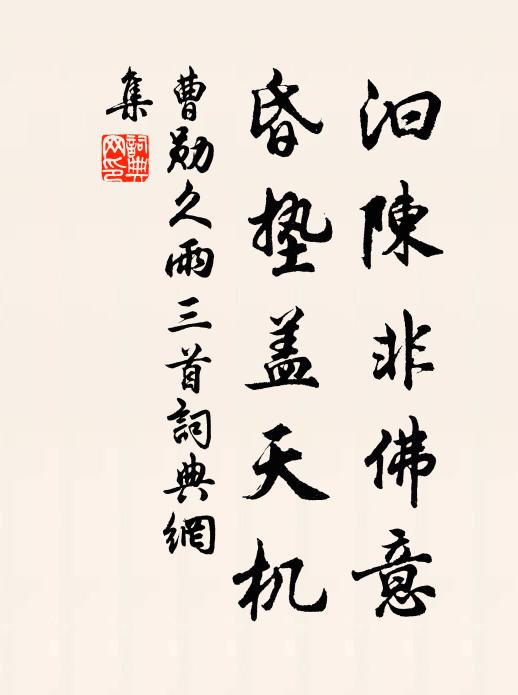 汩陳非佛意
昏墊盖天机
曹勛久雨三首詞典網
集
詞典
网印